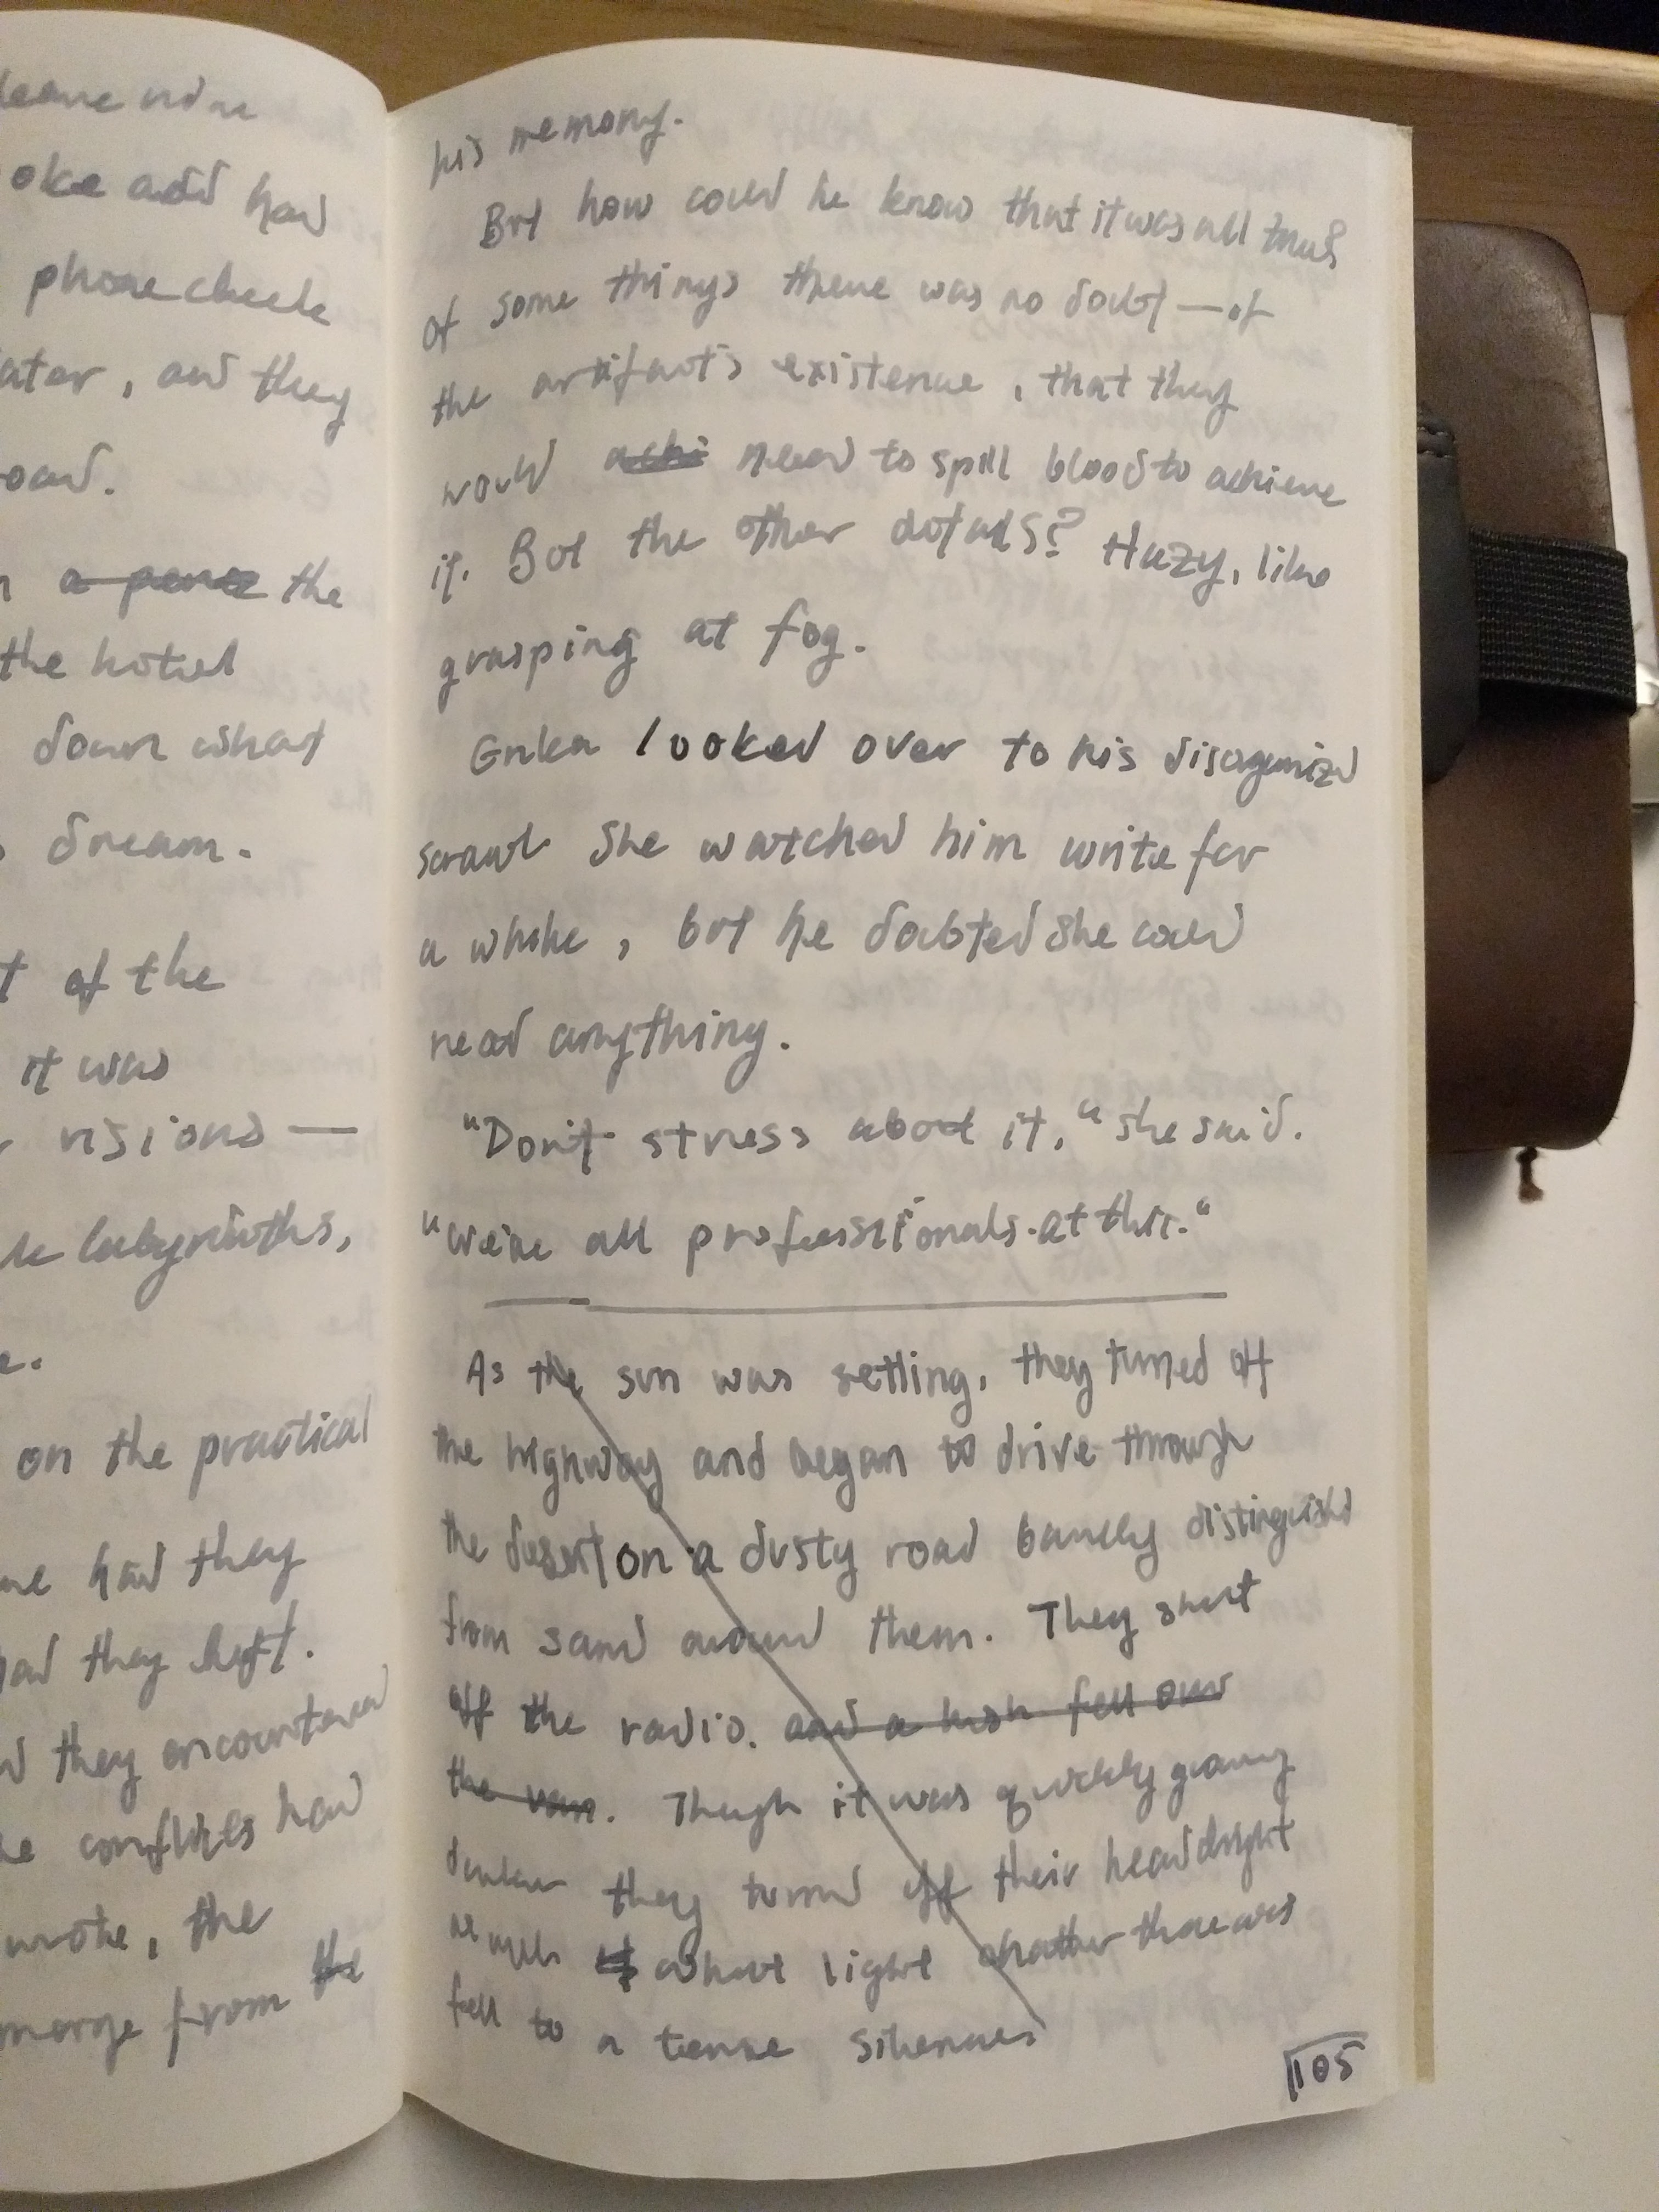 leave
oke and had
phone check
ater, and they
oad.
a the
the hotel
down what
dream.
t of the
it was
visions —
labyrinths,
e.
on the practical
had they
had they left.
they encountered
conflicts had
wrote, the
merge from the
his memory.
But how could he know that it was all true?
Of some things there was no doubt — of
the artifact's existence, that they
would achi need to spill blood to achieve
it. But the other details? Hazy, like
grasping at fog.
looked over to his disorganized
scrawl She watched him write for
a while, but he doubted she could
read anything.
"Don't stress about it," she said.
"We're all professionals at this."
As the sun was setting, they turned off
the highway and began to drive through
the desert on a dusty road barely distinguished
from sand around them. They shut
off the radio. and a hush fell over
the van. Though it was quickly growing
darker they turned off their headlight
light chatter there was
fell to a tense silence
105